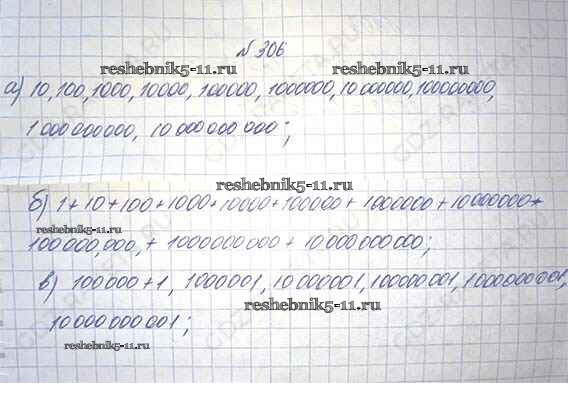 №306
reshebnik5-11.ru reshebnik5-11.ru
а) 10, 100, 1000, 10000, 100000, 1000000, 10000000, 100000000,
1000000000, 10000000000;
reshebnik5-11.ru
б) 1+10+100+1000+10000+100000+1000000+10000000+
100000,000,+1000000000+10000000000;
в) 100000+1, 1000001, 10000001, 100000001, 1000000001,
reshebnik5-11.ru
10000000001;
reshebnik5-11.ru